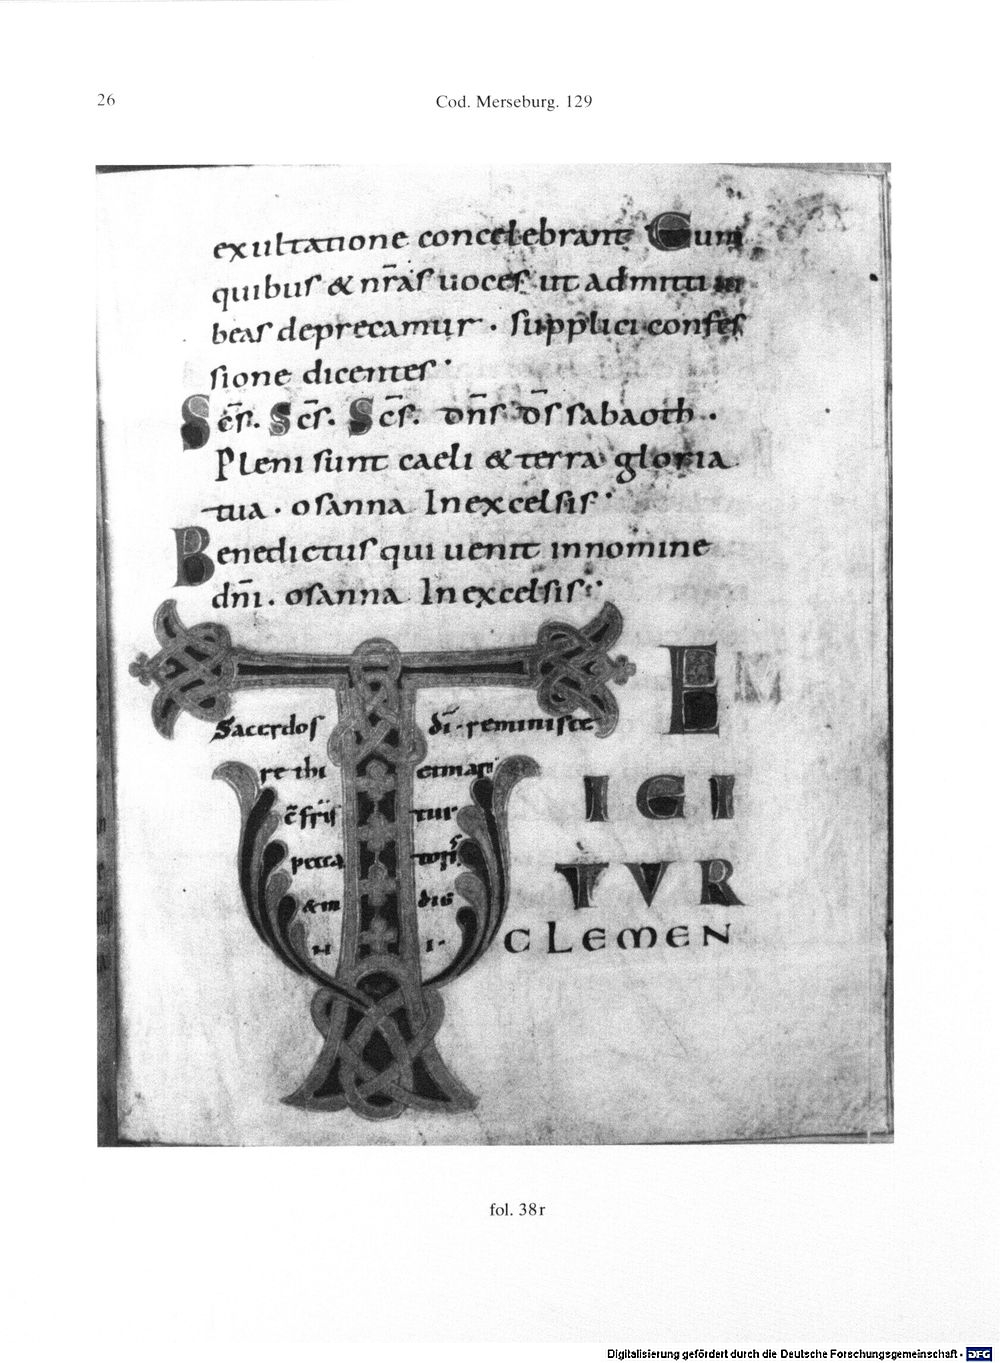 26
Cod. Merseburg. 129
exultatione concelebrant Cum
quibus & nr̄as uoces ut admitti iu
beas deprecamur · supplici confes
sione dicentes ·
Sc̄s. Sc̄s. Sc̄s. dn̄s d̄s sabaoth ·
Pleni sunt caeli & terra gloria
tua · osanna In excelsis ·
Benedictus qui uenit in nomine
dn̄i. osanna In excelsis :·
TE
Sacerdos dī · reminisce
re thi etmari
c̄fr̄is tur
pecca toris
& in dig
N I ·
IGI
TVR
CLEMEN
fol. 38r
Digitalisierung gefördert durch die Deutsche Forschungsgemeinschaft - DFG